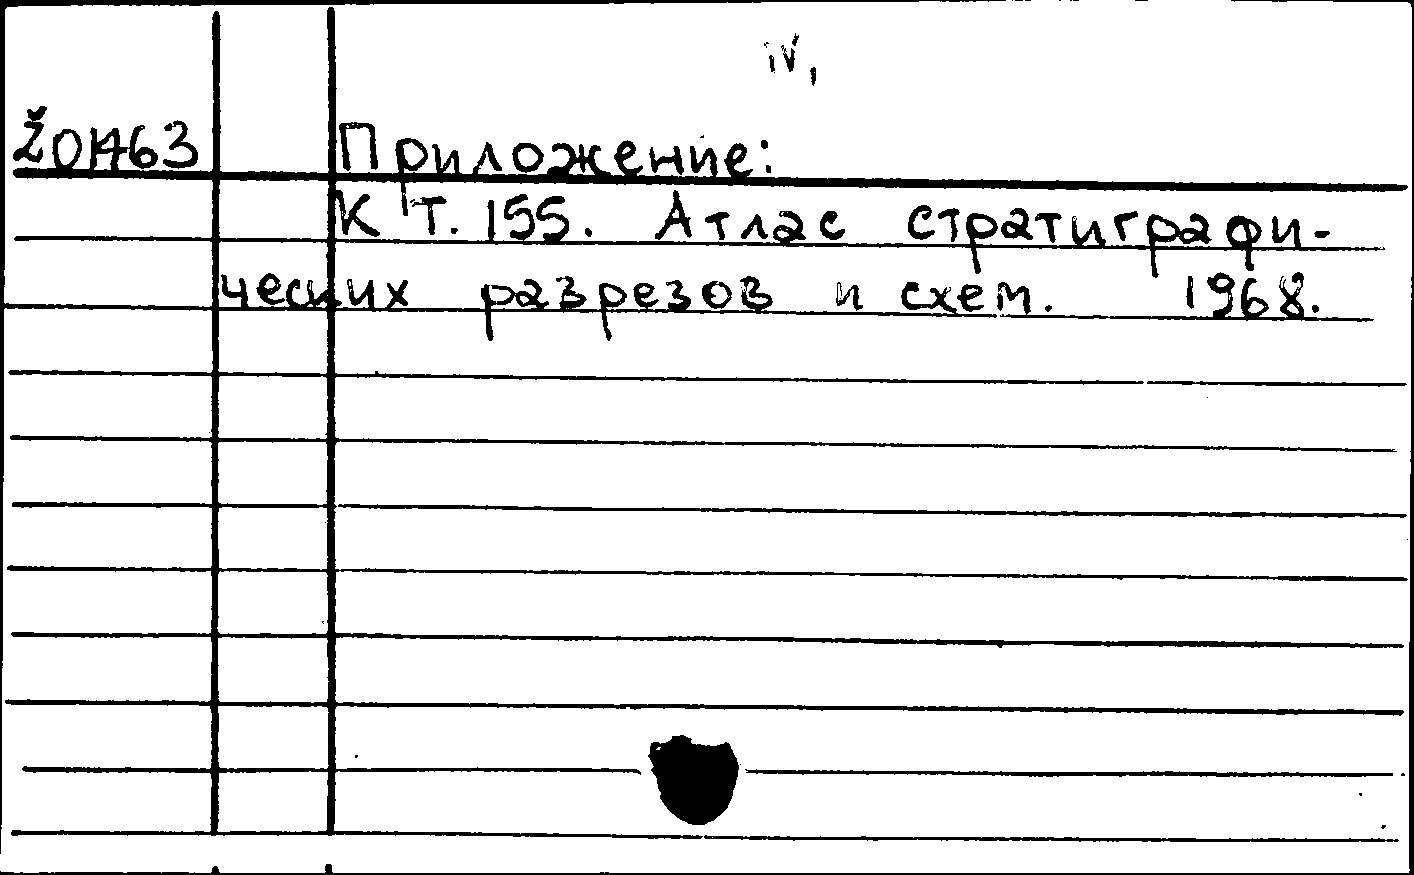 iv,
Ž01463 Приложение:
К Т. 155. Атлас стратиграфи-
ческих разрезов и схем. 1968.